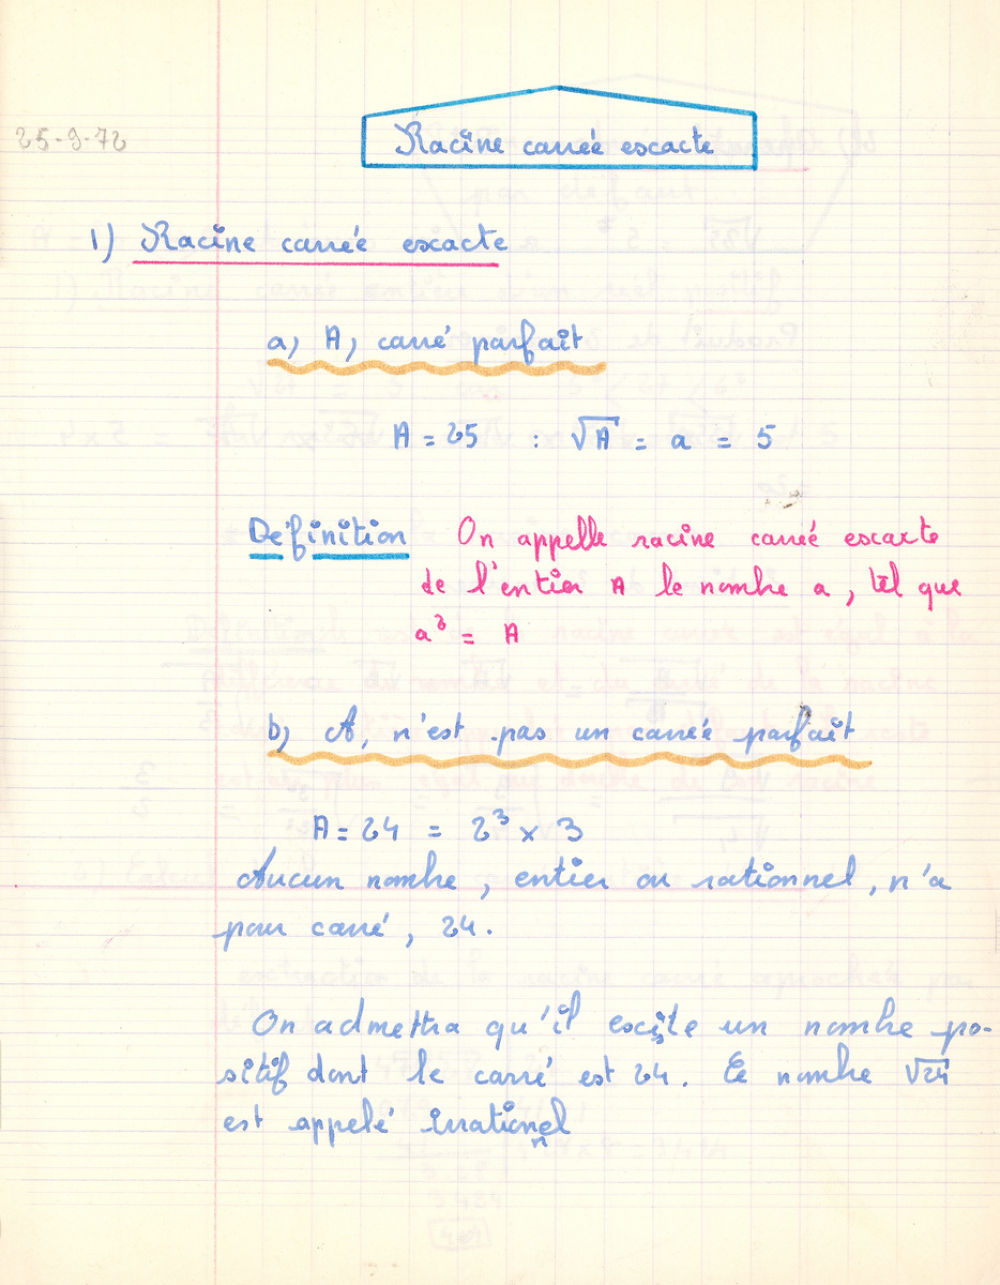 25-9-72
Racine carrée exacte
1) Racine carrée exacte
a) A, carré parfait
A = 25 : √A = a = 5
Définition On appelle racine carrée exacte
de l'entier A le nombre a, tel que
a² = A
b) A, n'est pas un carré parfait
A = 24 = 2³ × 3
Aucun nombre, entier ou rationnel, n'a
pour carré, 24.
On admettra qu'il existe un nombre po-
sitif dont le carré est 24. Ce nombre √24
est appelé irrationnel